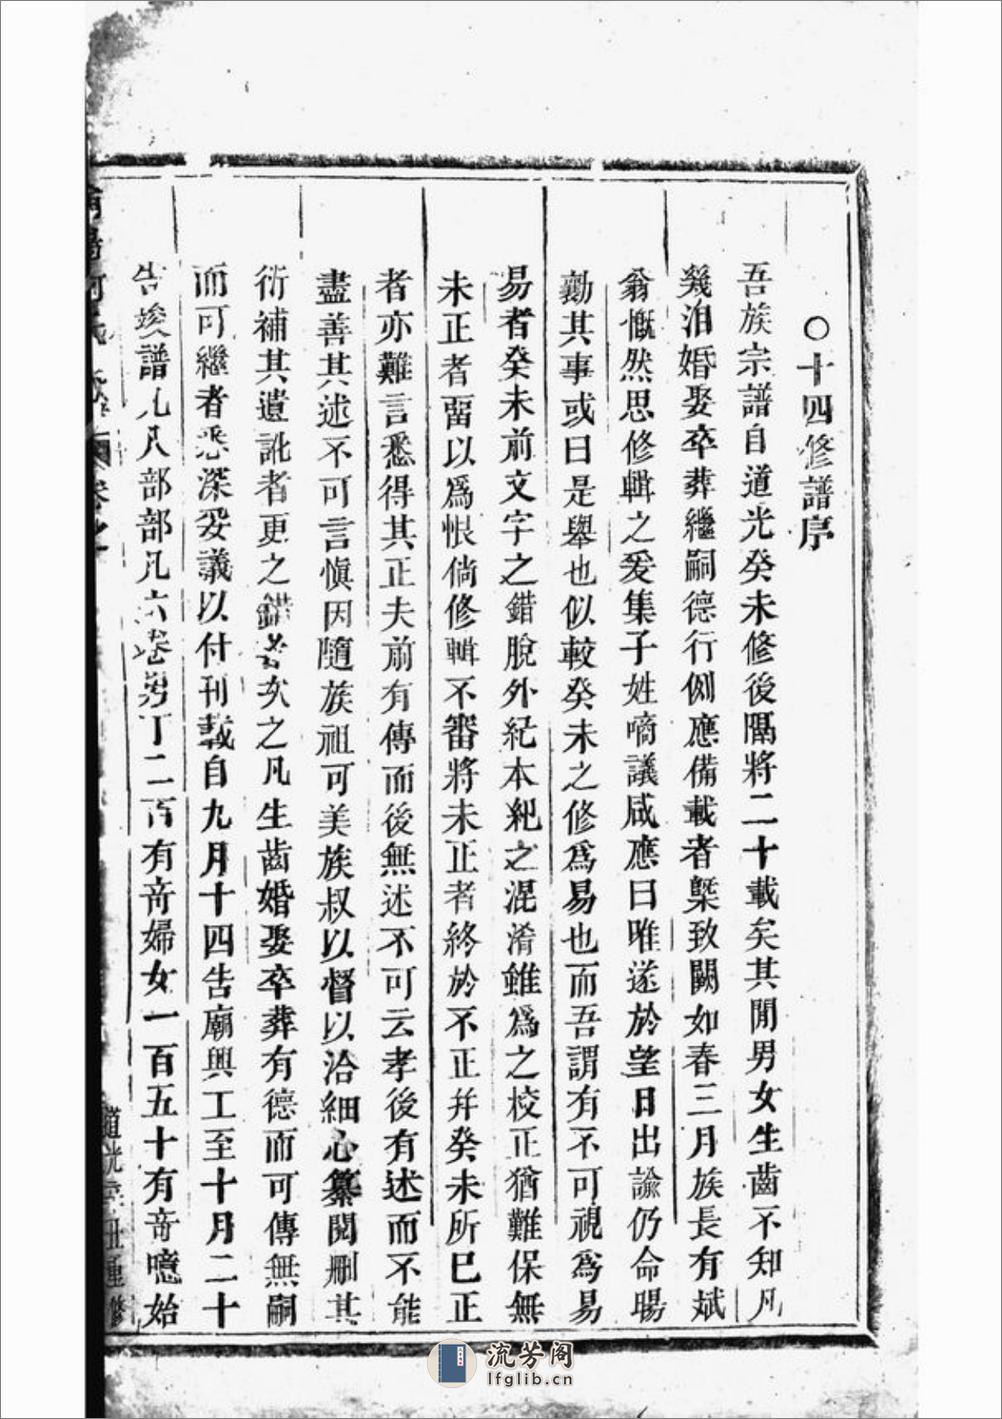 〇十四修譜序
吾族宗譜自道光癸未修後隔將二十載矣其閒男女生齒不知凡
幾洎婚娶卒葬繼嗣德行例應備載者槩致闕如春三月族長有斌
翁慨然思修輯之爰集子姓啇議咸應曰唯遂於望日出諭仍命暘
勷其事或曰是舉也似較癸未之修爲易也而吾謂有不可視爲易
易者癸未前文字之錯脫外紀本紀之混淆雖爲之校正猶難保無
未正者畱以爲恨倘修輯不審將未正者終於不正幷癸未所巳正
者亦難言悉得其正夫前有傳而後無述不可云孝後有述而不能
盡善其述不可言愼因隨族祖可美族叔以督以洽細心纂閱刪其
衍補其遺訛者更之錯者次之凡生齒婚娶卒葬有德而可傳無嗣
而可繼者悉深妥議以付刊載自九月十四告廟興工至十月二十
告竣譜凡八部部凡六卷男丁二百有竒婦女一百五十有竒噫始
道光辛丑重修
流芳阁
lfglib.cn